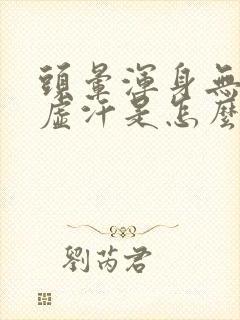 頭暈渾身無
虛汗是怎麼
劉芮君